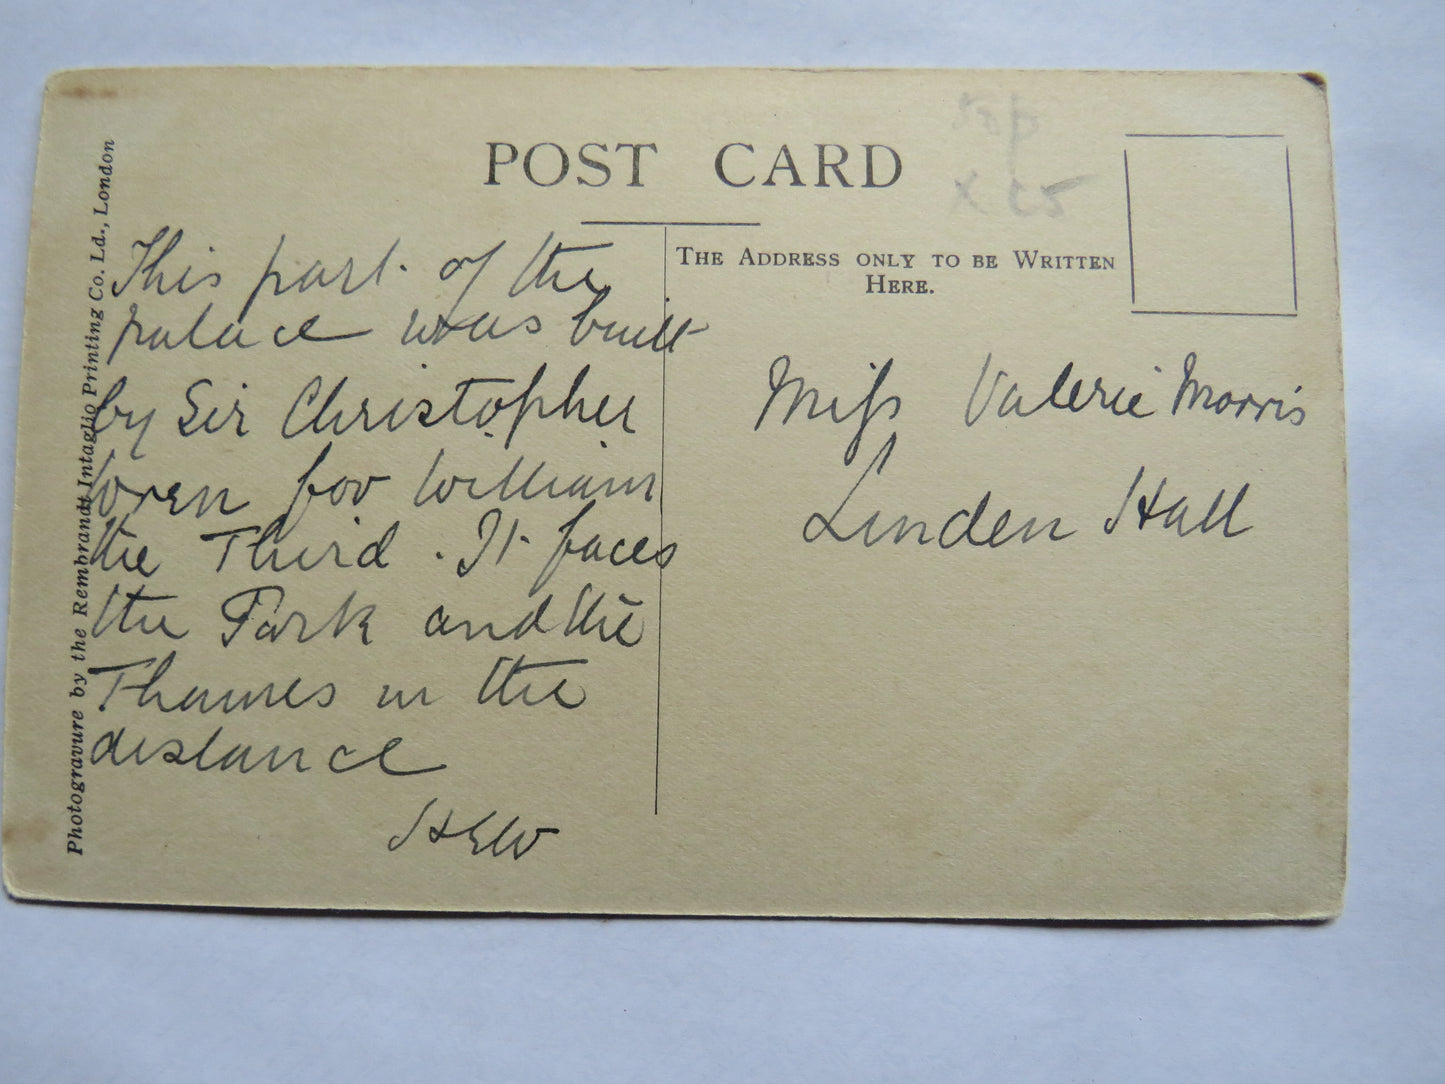 POST CARD
THE ADDRESS ONLY TO BE WRITTEN
HERE.
Photogravure by the Rembrandt Intaglio Printing Co. Ld., London
This part of the
palace was built
by Sir Christopher
Wren for William
the Third. It faces
the Park and the
Thames in the
distance
HEW
Miss Valerie Morris
Linden Hall